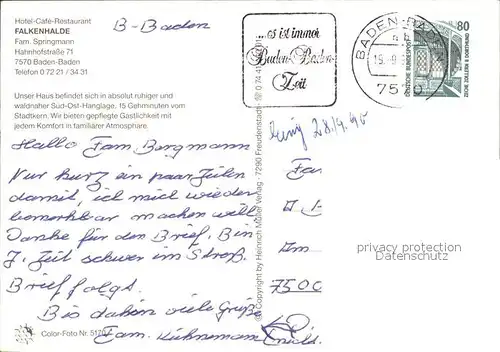 Hotel-Café-Restaurant
FALKENHALDE
Fam. Springmann
Hahnhofstraße 71
7570 Baden-Baden
Telefon 0 72 21 / 34 31
Unser Haus befindet sich in absolut ruhiger und
waldnaher Süd-Ost-Hanglage, 15 Gehminuten vom
Stadtkern. Wir bieten gepflegte Gastlichkeit mit
jedem Komfort in familiärer Atmosphäre.
B-Baden
Hallo Fam. Bergmann
Nur kurz ein paar Zeilen
damit, ich mich wieder
bemerkbar machen will.
Danke für den Brief. Bin
z. Zeit schwer im Streß.
Brief folgt.
Bis dahin viele Grüße
Fam. Kühnemann
Color-Foto Nr. 5170
© Copyright by Heinrich Müller Verlag - 7290 Freudenstadt
...es ist immer
Baden-Baden-
Zeit
BADEN-BADEN
7570
80
DEUTSCHE BUNDESPOST
ZECHE ZOLLERN II DORTMUND
28/9.90
Fa
Am
7500
wapraeservation protection